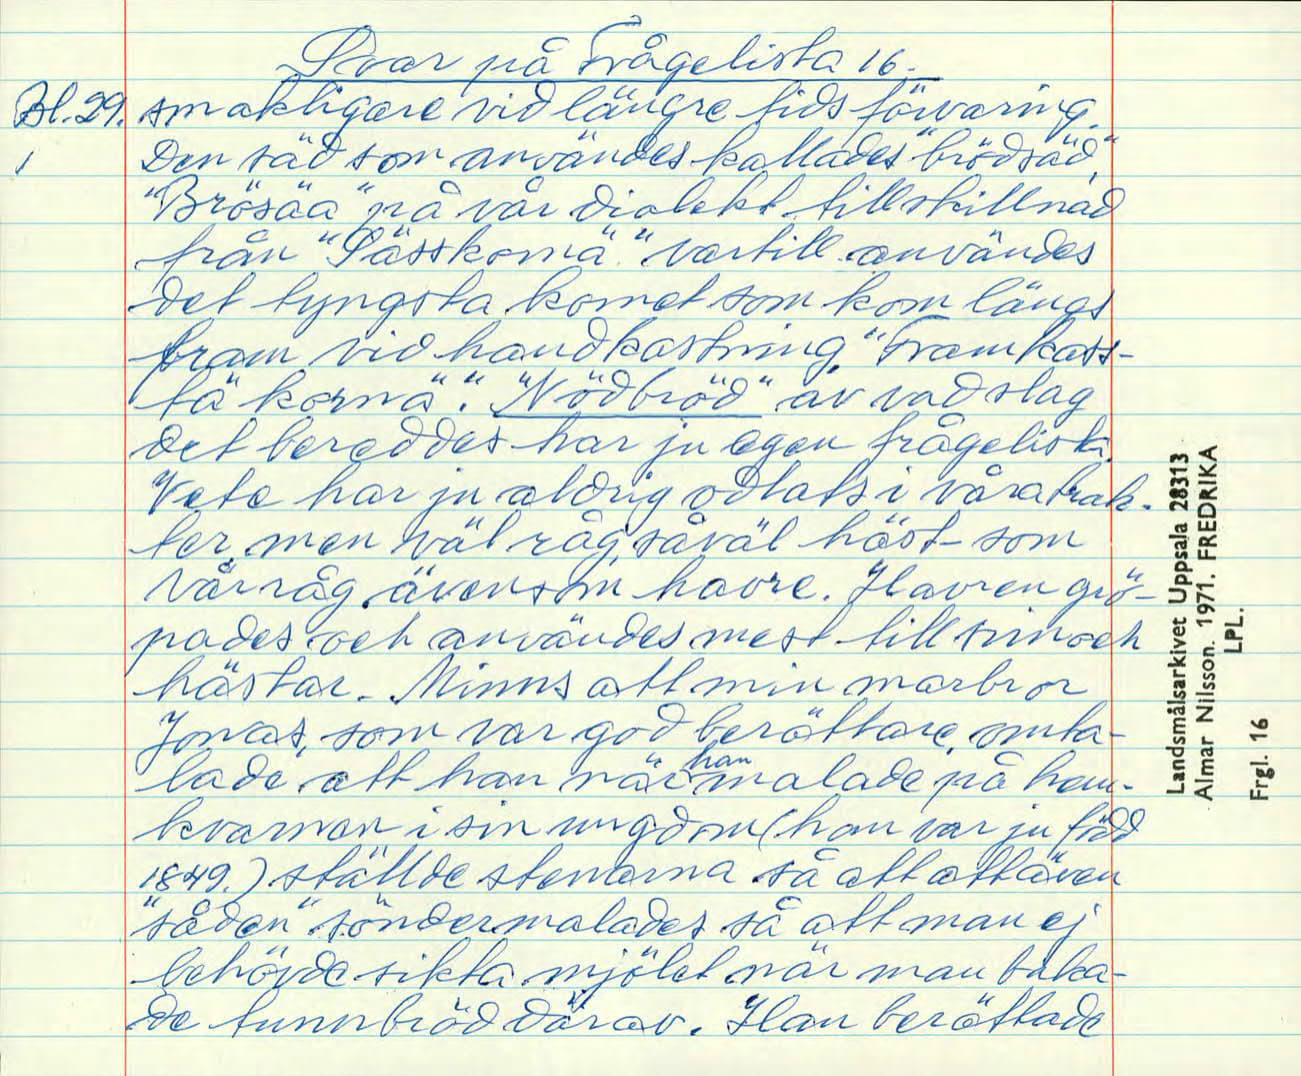 Svar på Frågelista 16.
Bl. 29. smakligare vid längre tids förvaring.
1 Den säd som användes kallades "brödsäd,"
"Brösäa" på vår dialekt till skillnad
från "Sässkornä". Vartill användes
det tyngsta kornet som kom längs
fram vid handkastning, "Framkass-
tä kornä". "Nödbröd" av vad slag
det bereddes har ju egen frågelista.
Vete har ju aldrig odlats i våra trak-
ter, men väl råg såväl höst- som
vårråg även som havre. Havren grö-
pades och användes mest till svin och
hästar. Minns att min morbror
Jonas, som var god berättare, omta-
lade att han när han malade på hem-
kvarnan i sin ungdom (han var ju född
1849.) ställde stenarna så att att även
"såden" söndermalades så att man ej
behövde sikta mjölet när man baka-
de tunnbröd därav. Han berättade
Landsmålsarkivet Uppsala 28313
Almar Nilsson. 1971. FREDRIKA
LPL.
Frgl. 16